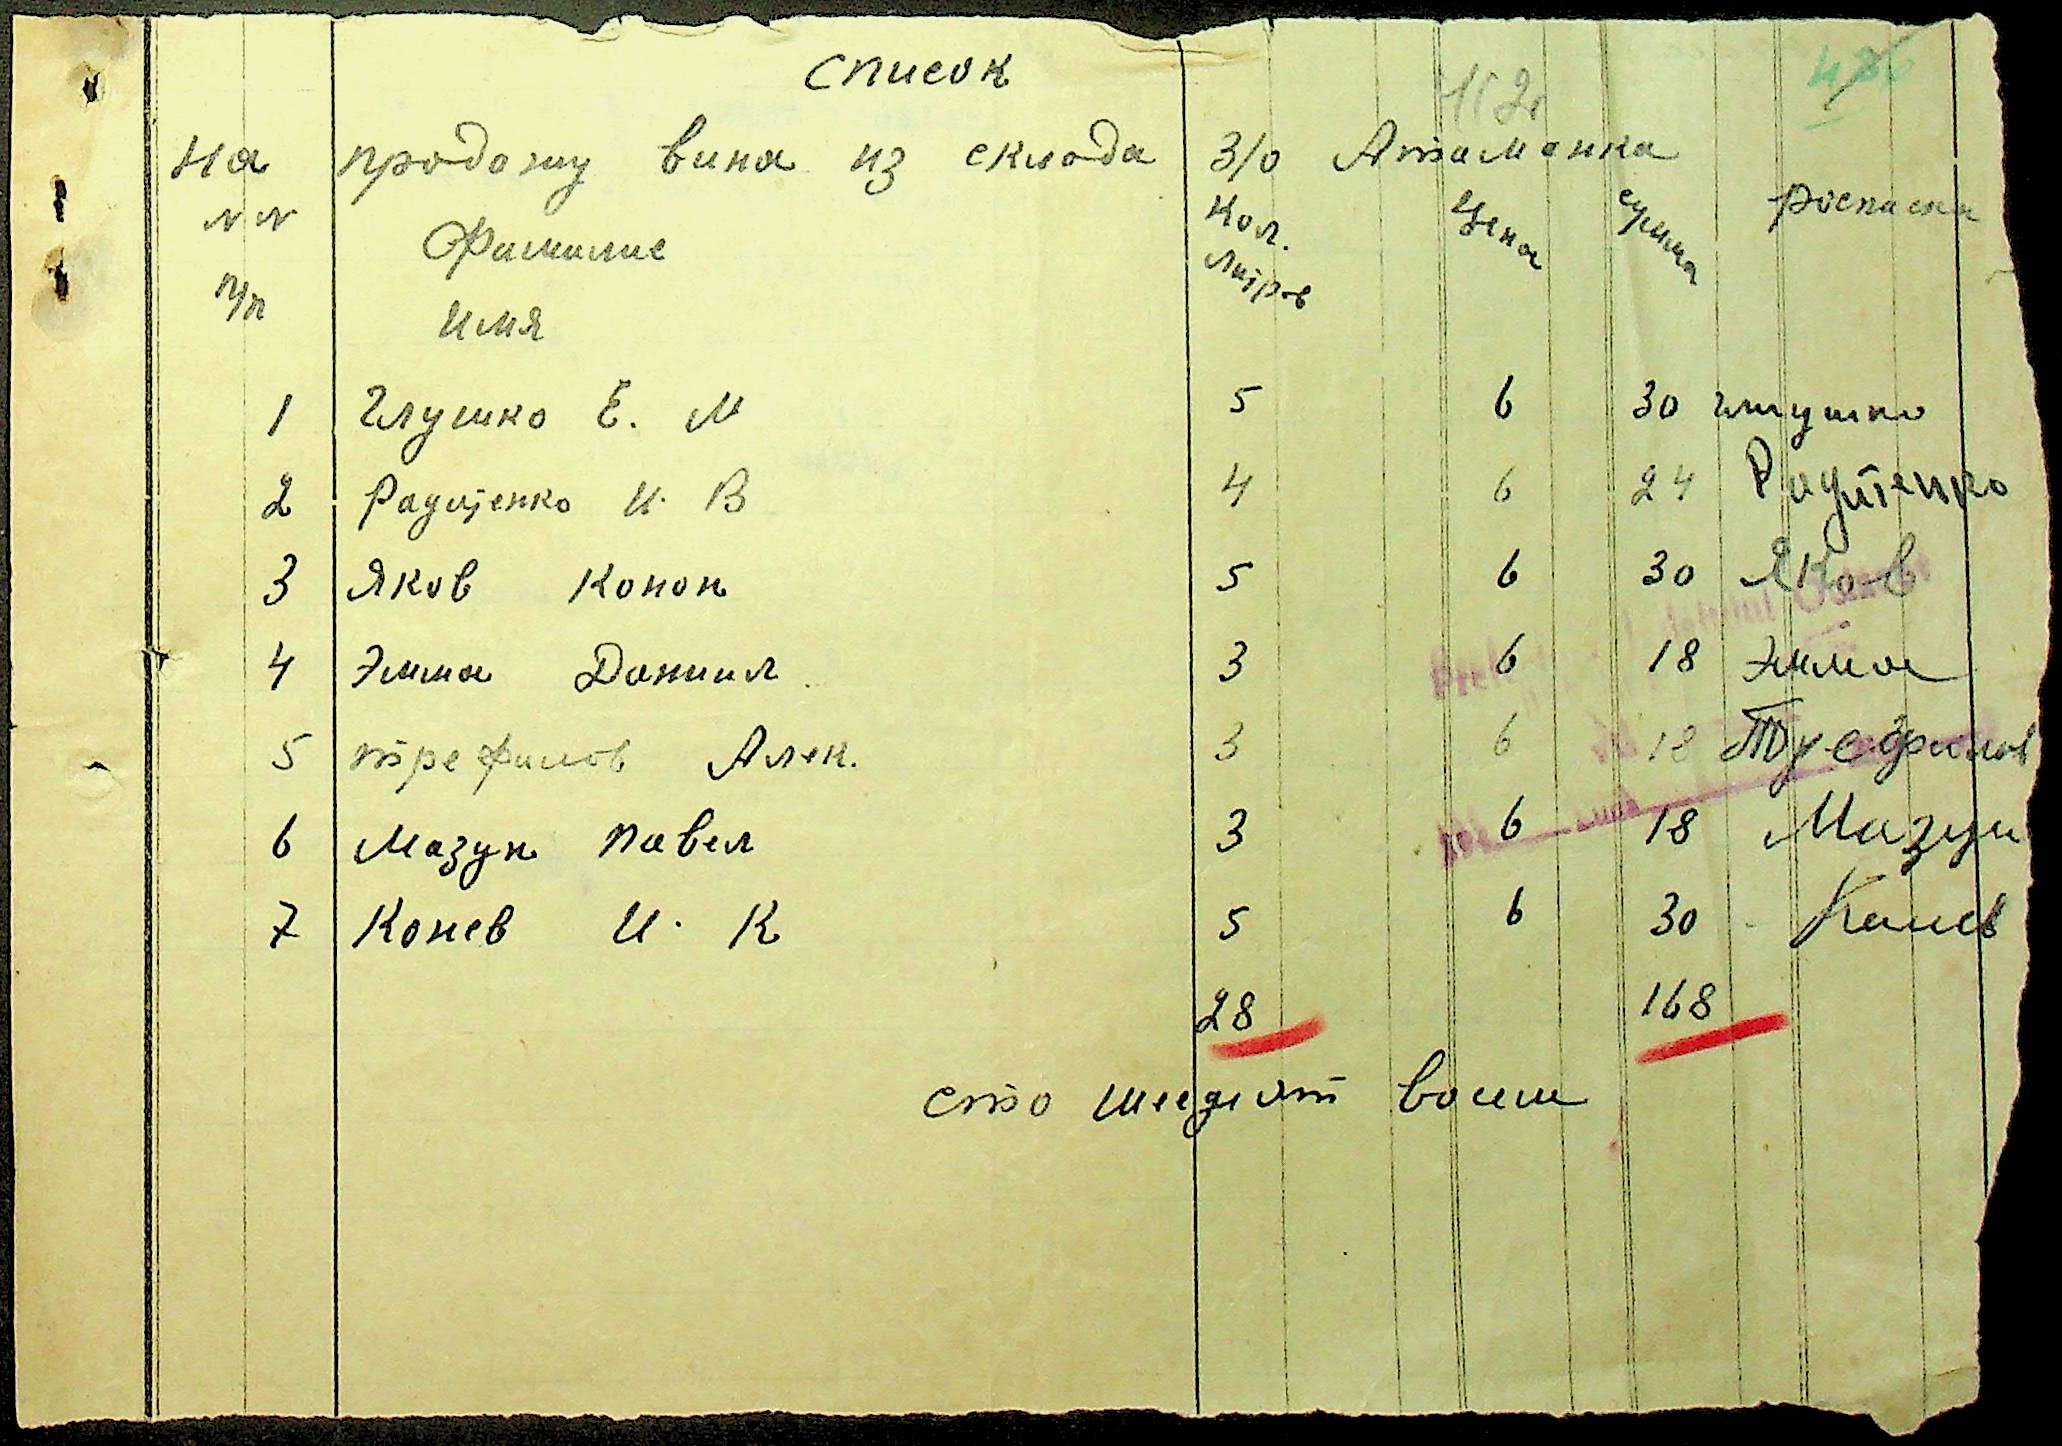 список
на продажу вина из склада З/о Атаманка
№№ п/п Фамилие имя Кол. литров Цена сумма росписка
1 Глушко Е. М 5 6 30 глушко
2 Радченко И. В 4 6 24 Радченко
3 Яков Конон 5 6 30 Яков
4 Эмма Даниил 3 6 18 Эмма
5 трефилов Алек. 3 6 18
6 Мазун Павел 3 6 18 Мазун
7 Конев И. К 5 6 30 Конев
28 168
сто шесдят восем